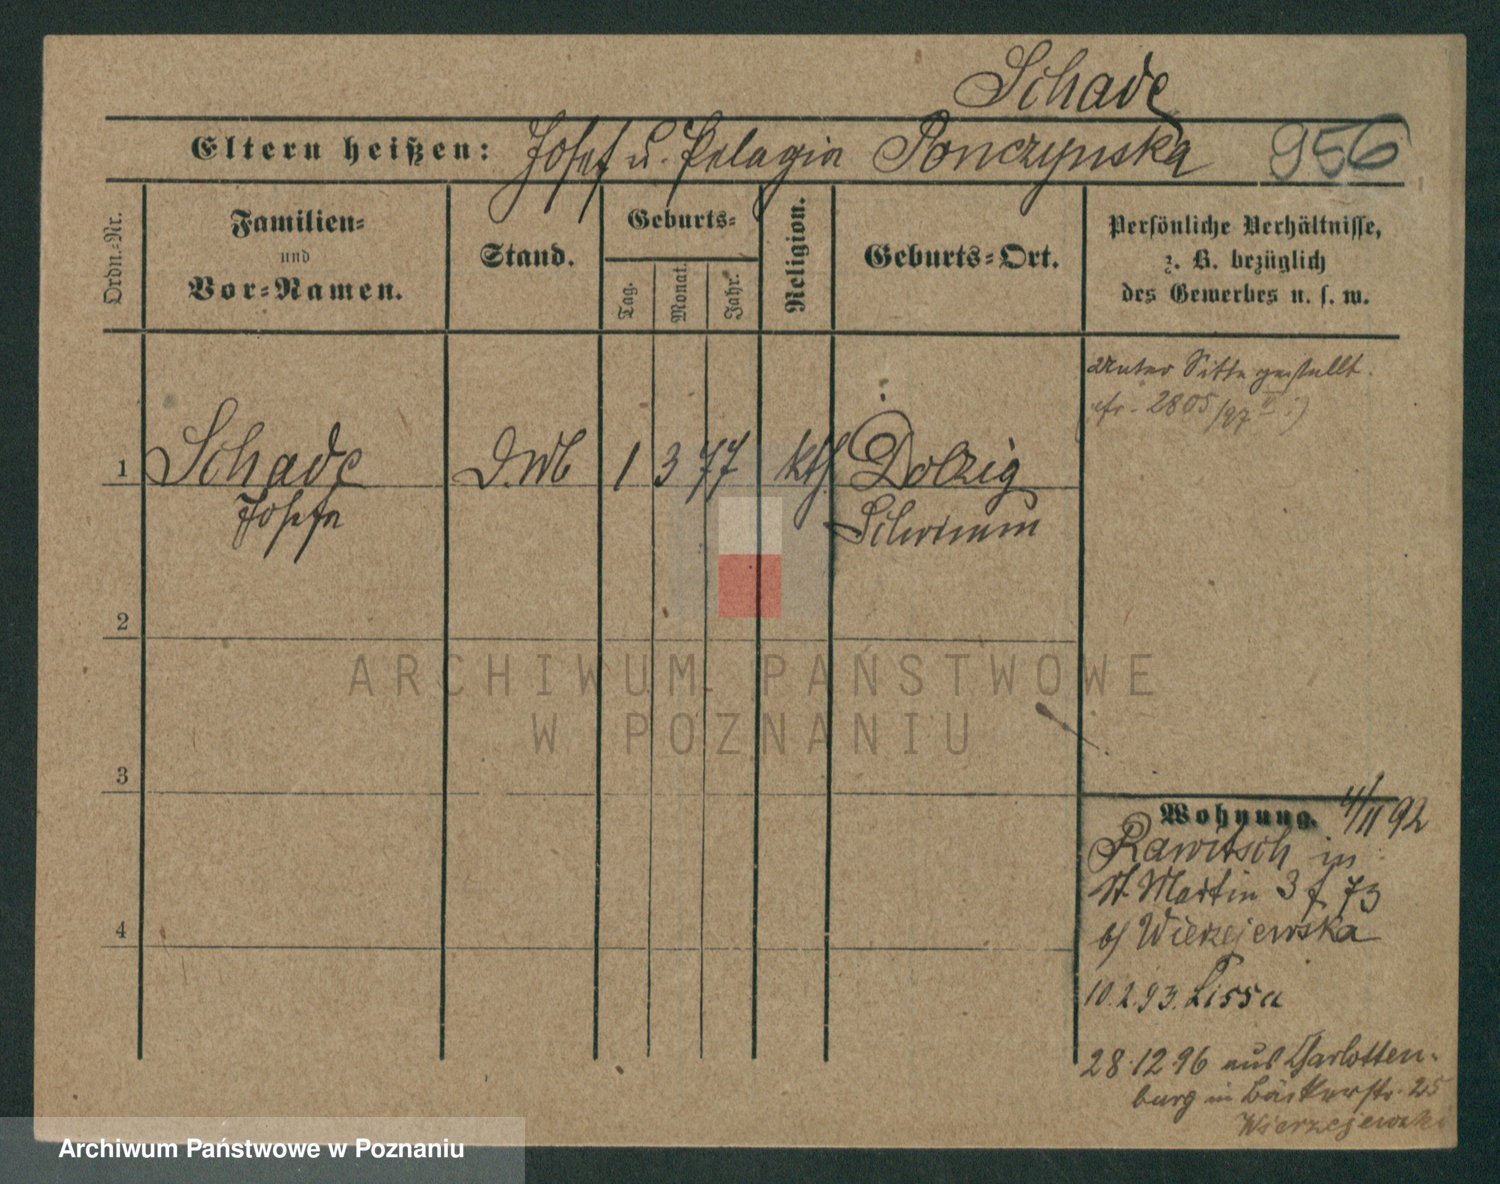 Schade
Eltern heißen: Josef u. Pelagia Ponczynska 956
Ordn.-Nr.
Familien-
und
Vor-Namen.
Stand.
Geburts-
Tag.
Monat.
Jahr.
Religion.
Geburts-Ort.
Persönliche Verhältnisse,
z. B. bezüglich
des Gewerbes u. s. w.
Unter Sitte gestellt.
cfr. 2805/97
1 Schade 1 3 77 kth Dolzig
Josefa Schrimm
2
3
4
Wohnung. 4/11 92
Rawitsch in
St. Martin 3 f 73
b/ Wierzejewska
10.2.93. Lissa
28.12 96 aus Charlotten-
burg in Bäckerstr. 25
Wierzejewski
ARCHIWUM PAŃSTWOWE
W POZNANIU
Archiwum Państwowe w Poznaniu